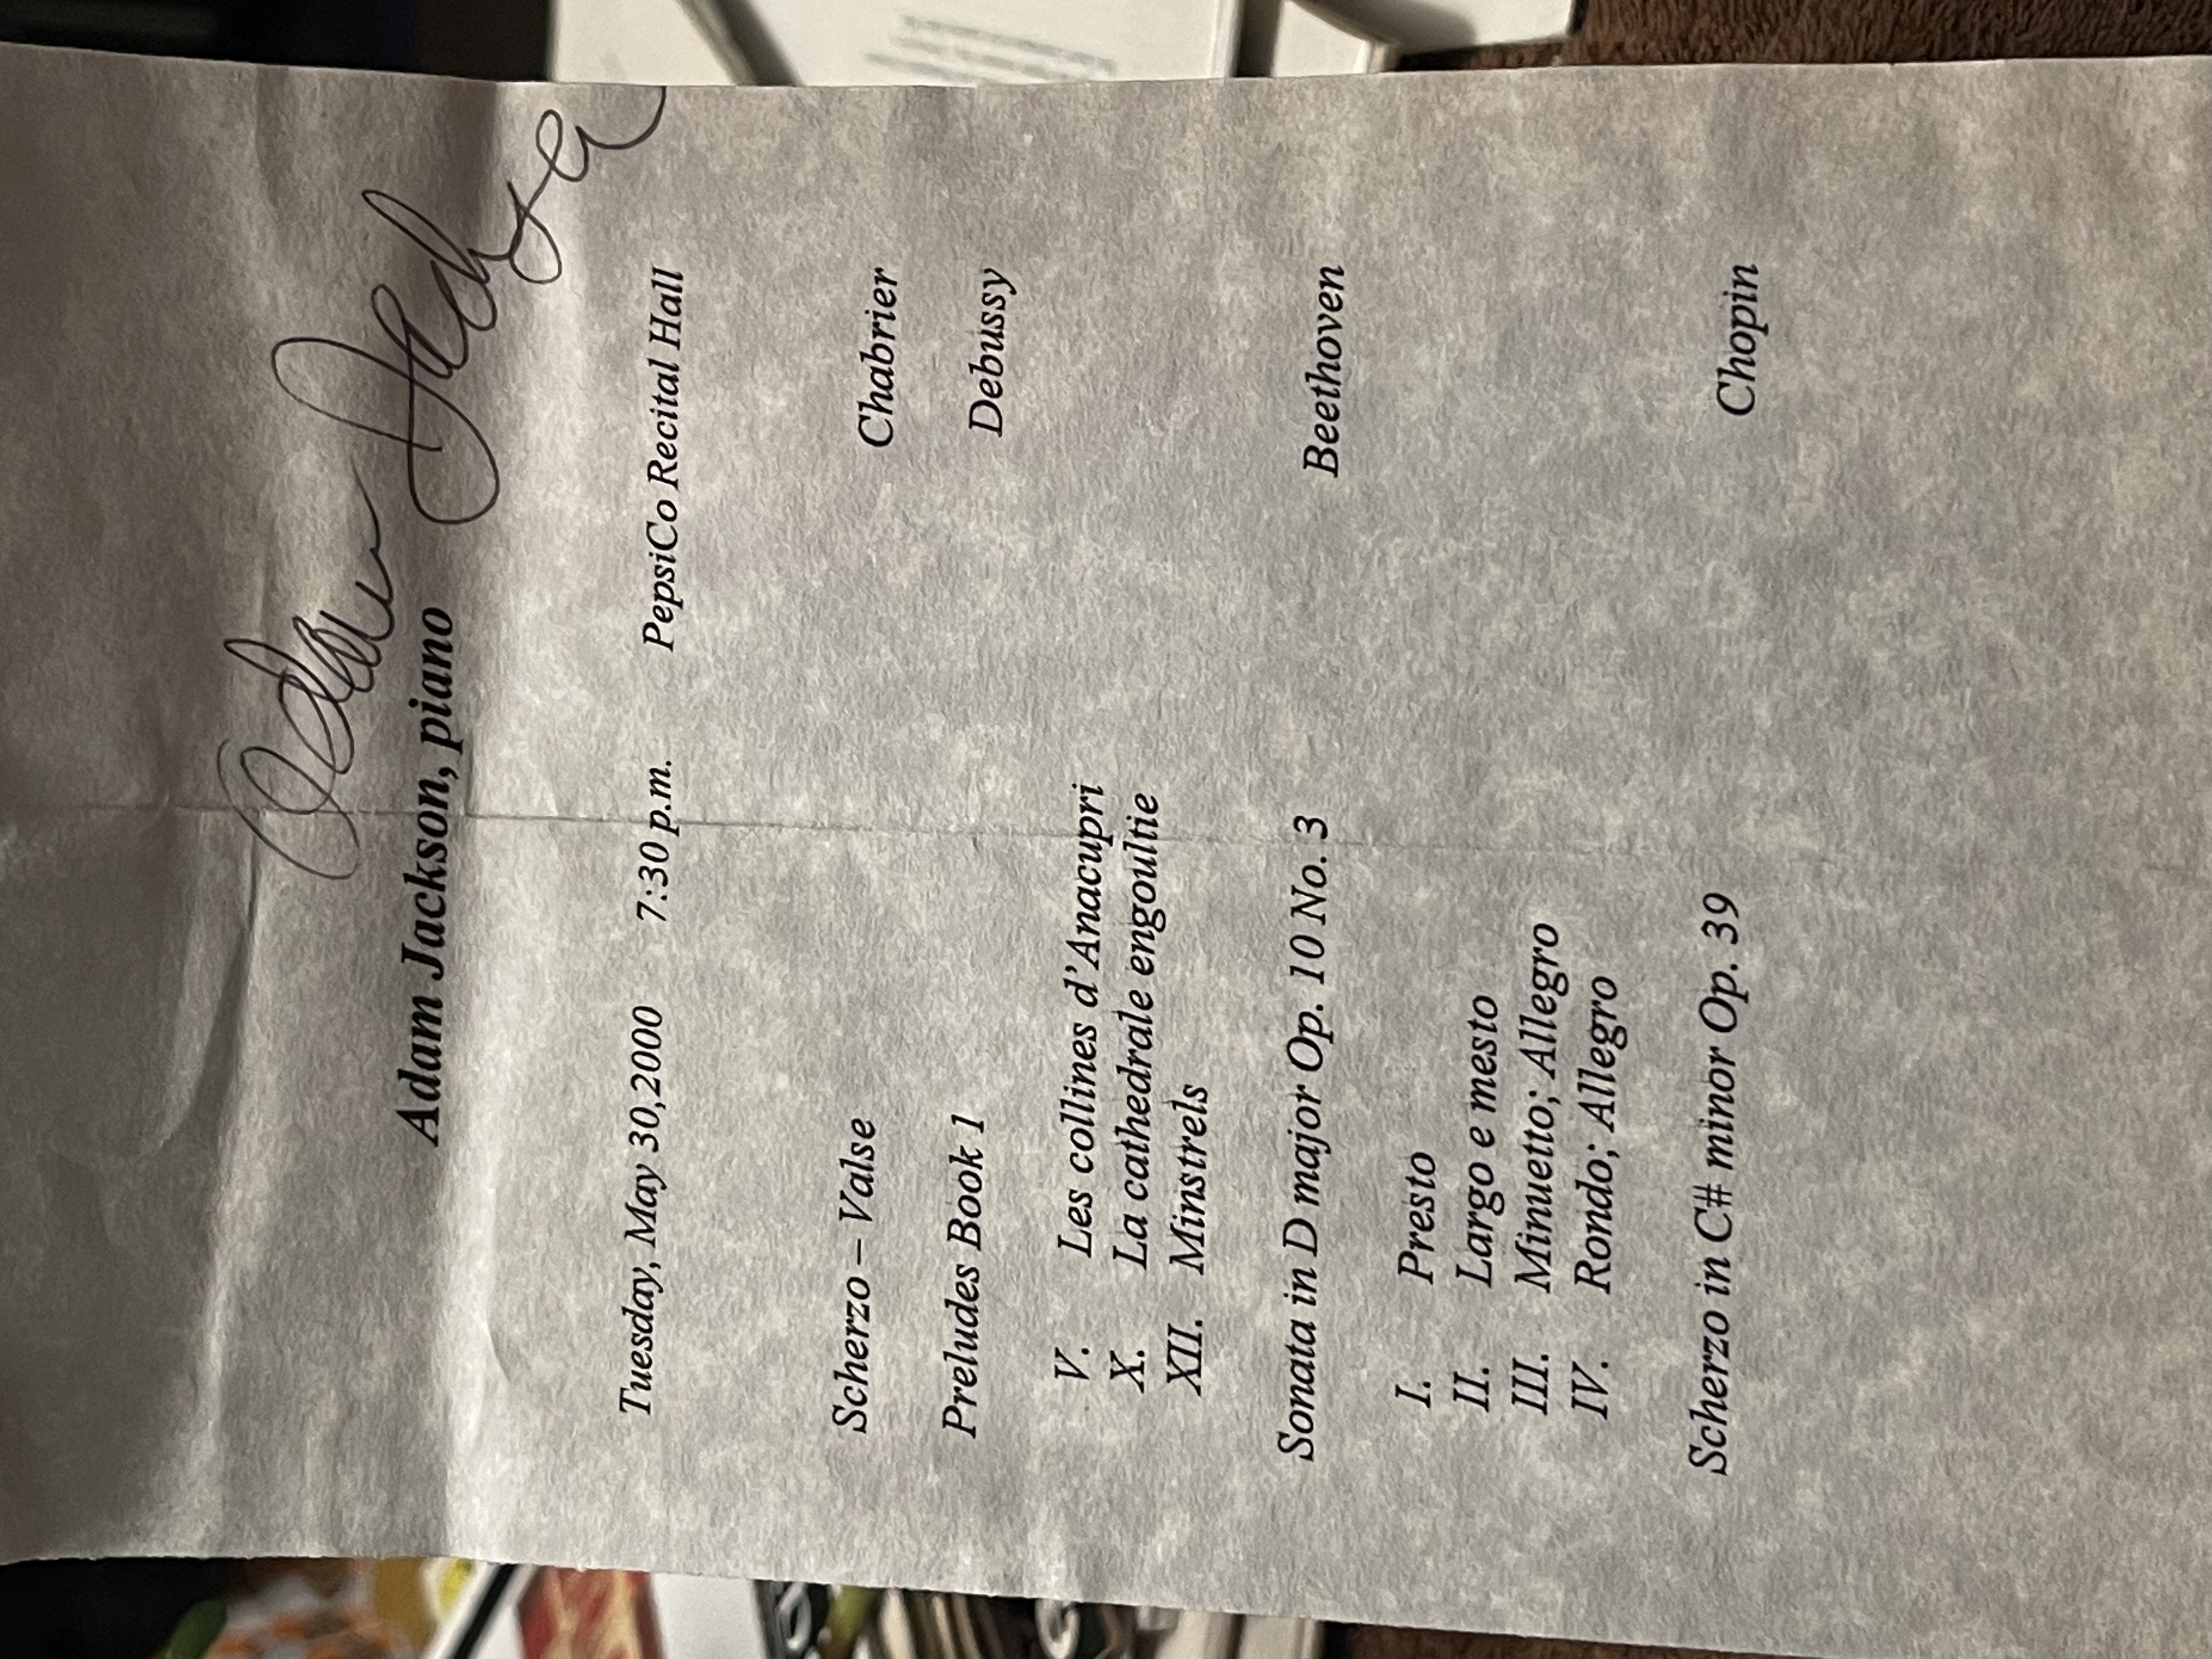 Adam Jackson
Adam Jackson, piano
Tuesday, May 30,2000 7:30 p.m. PepsiCo Recital Hall
Scherzo – Valse Chabrier
Preludes Book 1 Debussy
V. Les collines d'Anacupri
X. La cathedrale engoultie
XII. Minstrels
Sonata in D major Op. 10 No. 3 Beethoven
I. Presto
II. Largo e mesto
III. Minuetto; Allegro
IV. Rondo; Allegro
Scherzo in C# minor Op. 39 Chopin